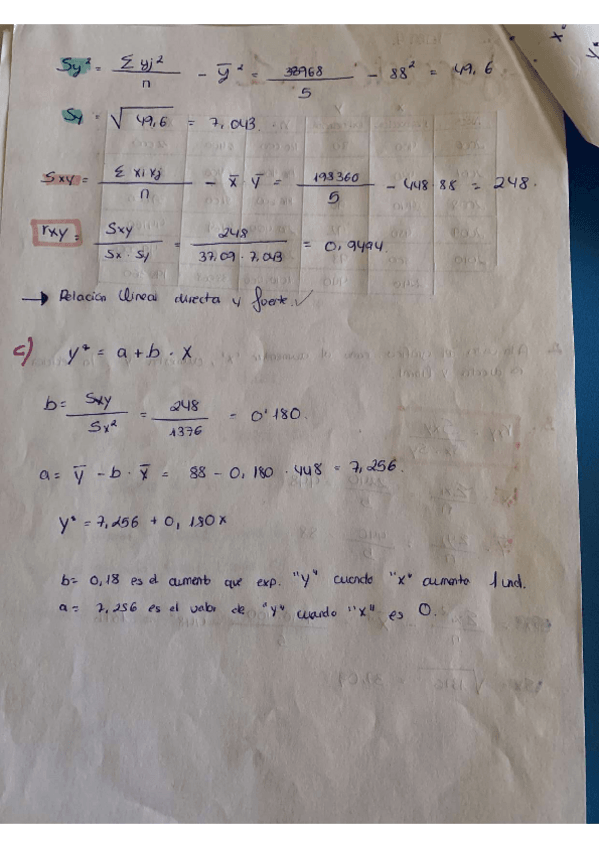 Sy² = Σ yj² / n - ȳ² = 38968 / 5 - 88² = 49,6
Sy = √49,6 = 7,043.
Sxy = Σ xi xj / n - x̄ · ȳ = 198360 / 5 - 448·88 = 248.
rxy = Sxy / Sx · Sy = 248 / 37,09 · 7,043 = 0,9494.
→ Relación lineal directa y fuerte. ✓
c) y* = a + b · x
b = Sxy / Sx² = 248 / 1376 = 0'180.
a = ȳ - b · x̄ = 88 - 0,180 · 448 = 7,256.
y* = 7,256 + 0,180x
b = 0,18 es el aumento que exp. "y" cuando "x" aumenta 1 und.
a = 7,256 es el valor de "y" cuando "x" es 0.